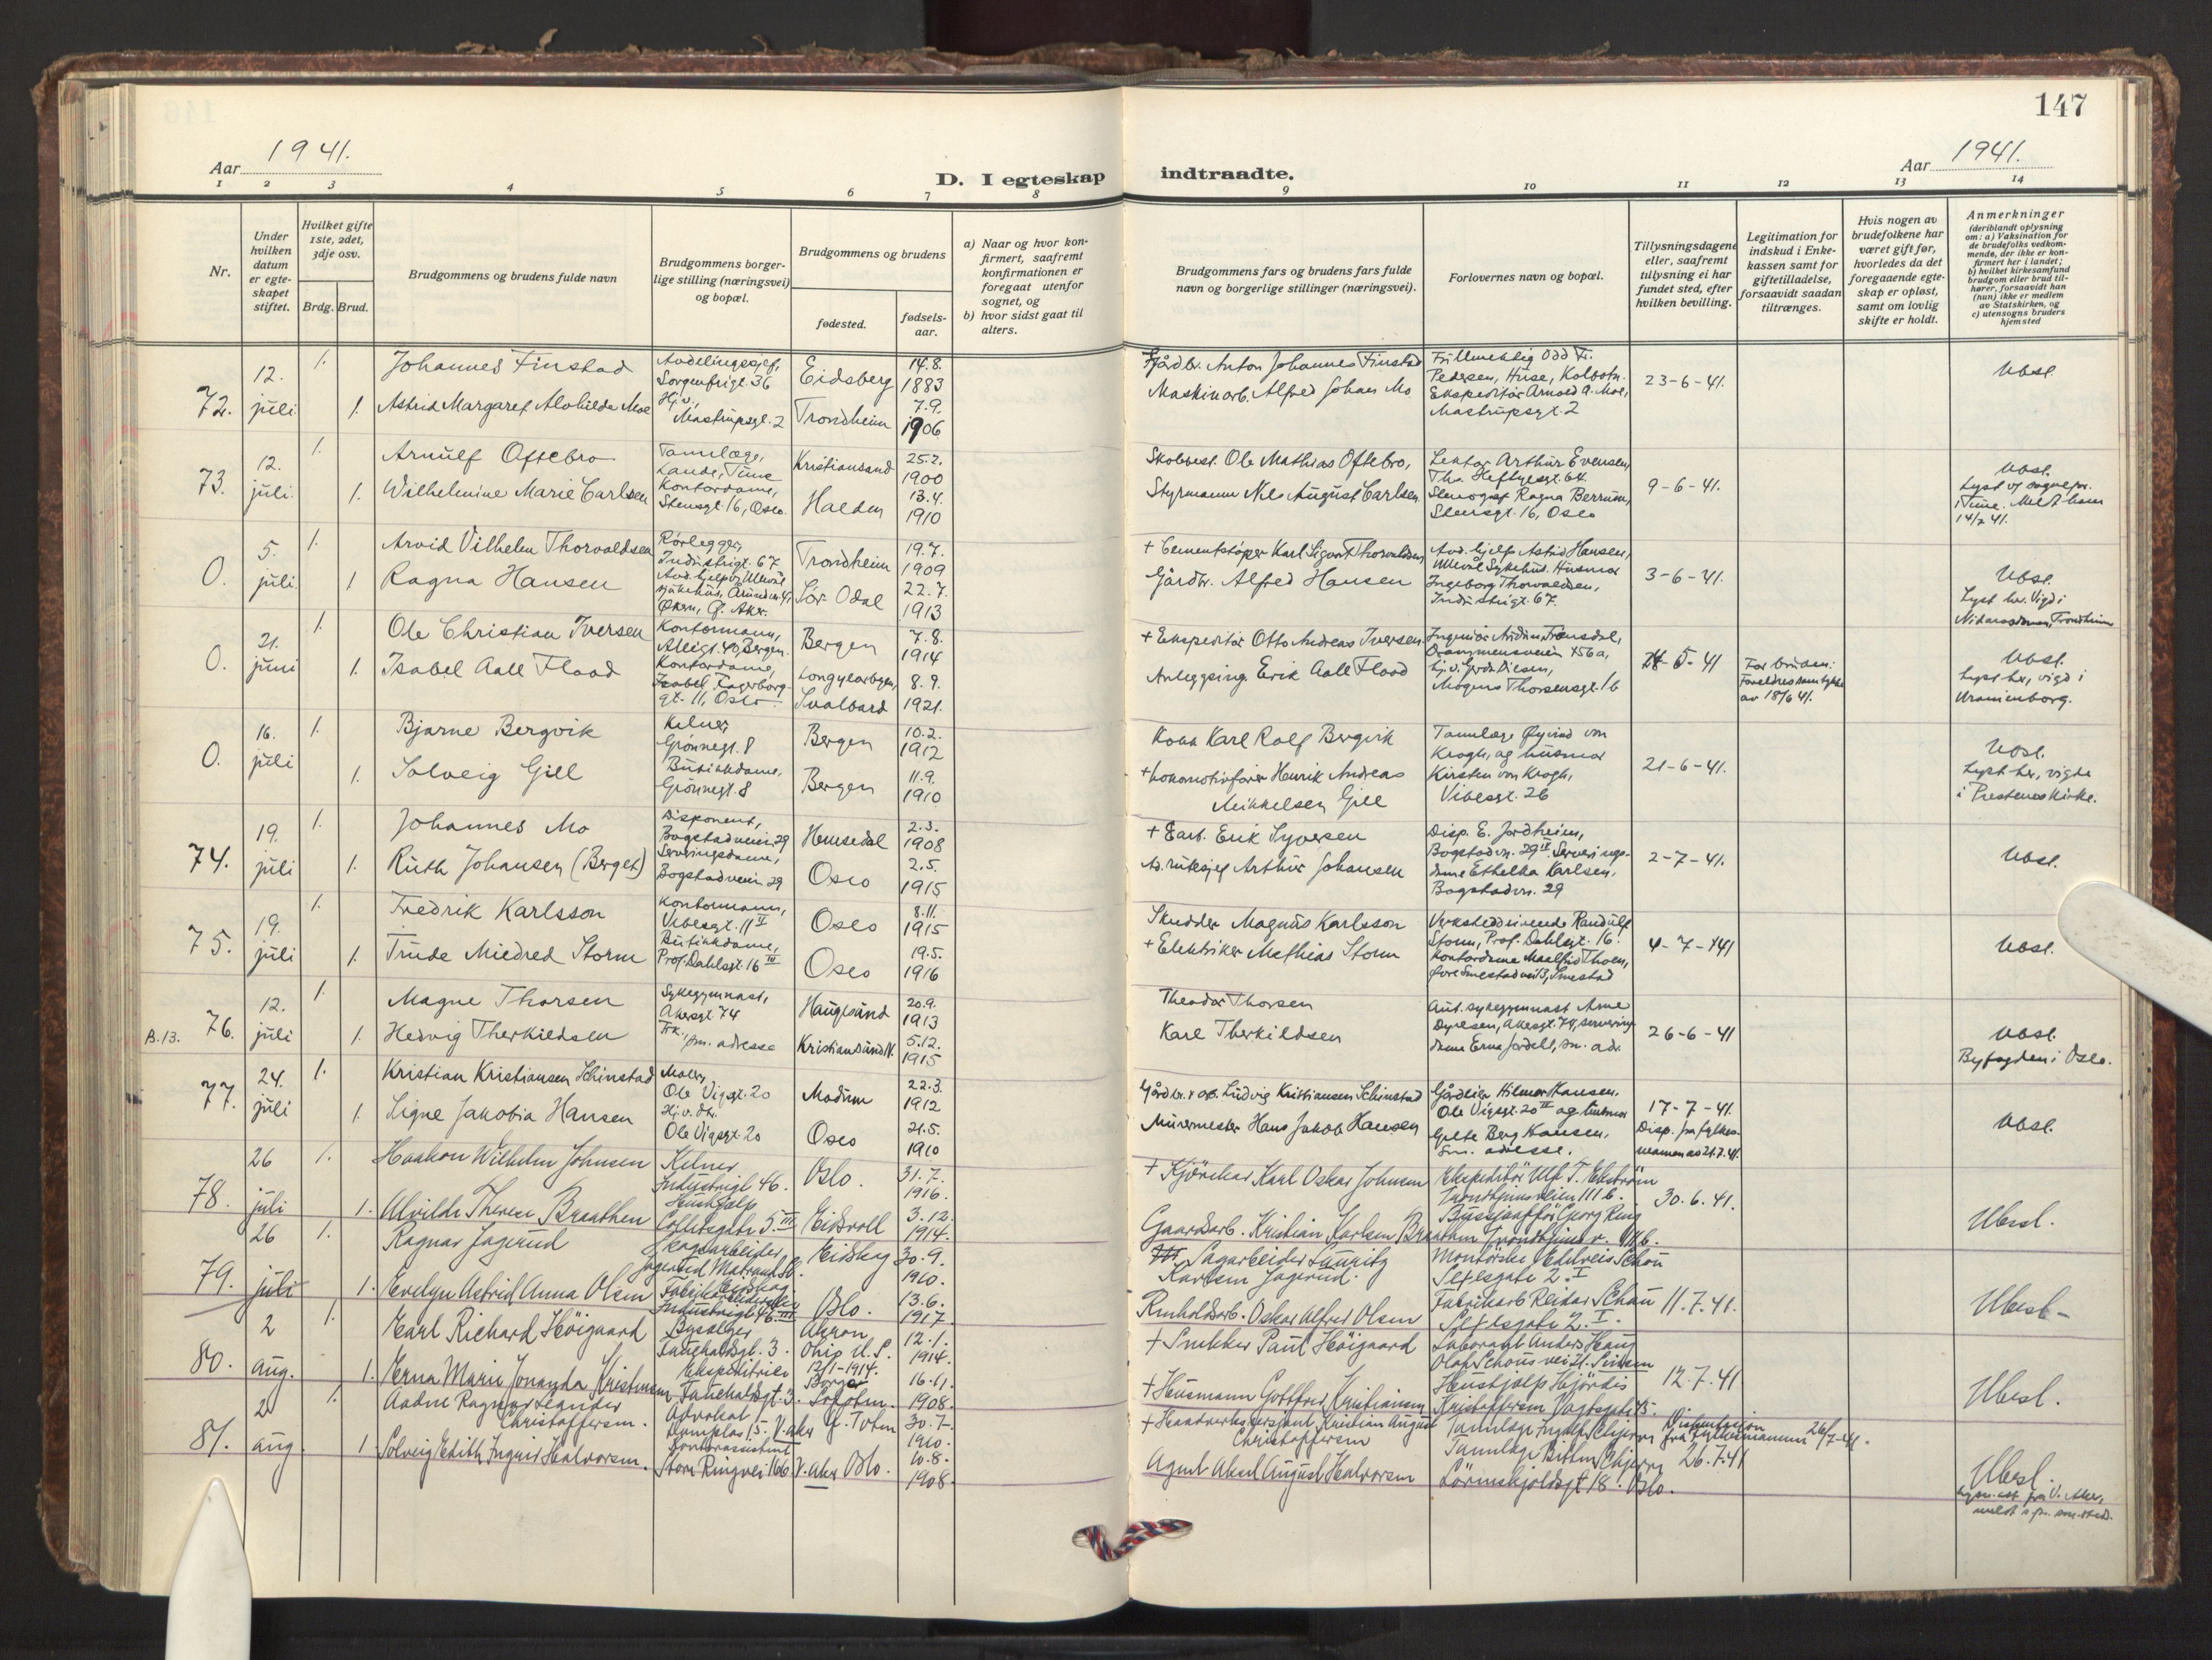 147
Aar 1941.
D. I egteskap indtraadte.
Aar 1941.
1 2 3 4 5 6 7 8 9 10 11 12 13 14
Nr.
Under hvilken datum er egteskapet stiftet.
Hvilket gifte 1ste, 2det, 3dje osv.
Brdg. Brud.
Brudgommens og brudens fulde navn
Brudgommens borgerlige stilling (næringsvei) og bopæl.
Brudgommens og brudens
fødested.
fødselsaar.
a) Naar og hvor konfirmert, saafremt konfirmationen er foregaat utenfor sognet, og
b) hvor sidst gaat til alters.
Brudgommens fars og brudens fars fulde navn og borgerlige stillinger (næringsvei).
Forlovernes navn og bopæl.
Tillysningsdagene eller, saafremt tillysning ei har fundet sted, efter hvilken bevilling.
Legitimation for indskud i Enkekassen samt for giftetilladelse, forsaavidt saadan tiltrænges.
Hvis nogen av brudefolkene har været gift før, hvorledes da det foregaaende egteskap er opløst, samt om lovlig skifte er holdt.
Anmerkninger
(deriblandt oplysning om: a) Vaksination for de brudefolks vedkommende, der ikke er konfirmert her i landet; b) hvilket kirkesamfund brudgom eller brud tilhører, forsaavidt han (hun) ikke er medlem av Statskirken, og c) utensogns bruders hjemsted
72. 12. juli 1. Johannes Finstad Avdelingssjef, Sorgenfrigt. 36 Eidsberg 14.8. 1883 Gårdbr. Anton Johannes Finstad Fullmektig Odd Fr. Pedersen, Huse, Kolbotn. 23-6-41. Ubsl.
1. Astrid Margaret Alvhilde Moe Hj.v., Mastrupsgt. 2 Trondheim 7.9. 1906 Maskinarb. Alfred Johan Mo Ekspeditør Arnold A. Moe, Mastrupsgt. 2
73. 12. juli. 1. Arnulf Oftebro Tannlæge, Lande, Tune Kristiansand 25.2. 1900 Skolebest. Ole Mathias Oftebro, Lektor Arthur Evensen, Ths. Heftyesgt. 64. 9-6-41. Ubsl.
1. Wilhelmine Marie Carlsen Kontordame, Stensgt. 16, Oslo. Halden 13.4. 1910 Styrmann Nils August Carlsen Stenograf Ragna Berrum, Stensgt. 16, Oslo
Lyst v/ sognepr. i Tune. Meldt ham 14/7 41.
0. 5. juli 1. Arvid Vilhelm Thorvaldsen Rørlegger, Industrigt. 67 Trondheim 19.7. 1909 + Cementstøper Karl Sigvart Thorvaldsen Avd. hjelp Astrid Hansen, Ullevål Sykehus. Husmor 3-6-41. Ubsl.
1 Ragna Hansen Avd. hjelp v/ Ullevål sykehus, Økern, Ø. Aker. Sør-Odal 22.7. 1913 Gårdbr. Alfred Hansen Ingeborg Thorvaldsen, Industrigt. 67.
Lyst her. Vigd i Nidarosdomen, Trondheim
0. 21. juni 1. Ole Christian Iversen Kontormann, Allégt. 40, Bergen. Bergen 7.8. 1914 + Ekspeditør Otto Andreas Iversen Ingeniør 24-5-41 Ubsl.
1. Isabel Aall Flood Kontordame, Fagerborggt. 11, Oslo Longyearbyen, Svalbard 8.9. 1921. Anleggsing. Erik Aall Flood hj.v. Gerda Mogens Thorsensgt. 16
For bruden: Foreldresamtykke av 18/6 41.
Lyst her, vigd i Uranienborg.
0. 16. juli 1. Bjarne Bergvik Kelner, Grønnegt. 8 Bergen 10.2. 1912 Kokk Karl Rolf Bergvik Tannlæge Øyvind von Krogh, og husmor 21-6-41. Ubsl.
1. Solveig Gill Butikkdame, Grønnegt. 8 Bergen 11.9. 1910 + Lokomotivfører Henrik Andreas Mikkelsen Gill Kirsten von Krogh, Vibesgt. 26
Lyst her, vigde i Prestenes Kirke.
74. 19. juli 1. Johannes Mo Disponent, Bogstadveien 29 Hemsedal 2.3. 1908 + Earb. Erik Syversen Disp. E. Jordheim, Bogstadvn. 29 II. 2-7-41. Ubsl.
1. Ruth Johansen (Berget) Serveringsdame, Bogstadveien 29 Oslo 2.5. 1915 Arthur Johansen Serveringsdame Ethelka Karlsen, Bogstadvn. 29
75. 19. juli 1. Fredrik Karlsson Kontormann, Vibesgt. 11 II Oslo 8.11. 1915 Skredder Magnus Karlsson Verkstedeierende Randulf Storm, Prof. Dahlsgt. 16. 4-7-1941 Ubsl.
1. Trude Mildred Storm Butikkdame, Prof. Dahlsgt. 16 III Oslo 19.5. 1916 + Elektriker Mathias Storm Kontordame Maalfrid Thoen, Øvre Smestadvei 13, Smestad
B. 13. 76. 12. juli 1. Magne Thorsen Sykegymnast, Akersgt 74 Haugesund 20.9. 1913 Theodor Thorsen Aut. sykegymnast Arne Dyresen, Akersgt. 74, 26-6-41 Ubsl.
1. Hedvig Therkildsen Frk., sm. adresse Kristiansund N. 5.12. 1915 Karl Therkildsen serveringsdame Erna Jordell, sm. adr.
Byfogden i Oslo.
77. 24. juli 1. Kristian Kristiansen Schinstad Maler, Ole Vigsgt. 20 Modum 22.3. 1912 Gårdbr. Ludvig Kristiansen Schinstad Gårdeier Hilmar Hansen, Ole Vigsgt. 20 III og husmor 17-7-41. Ubsl.
1. Signe Jakobia Hansen Hj.v. dtr. Ole Vigsgt. 20 Oslo 21.5. 1910 Murermester Hans Jakob Hansen Grete Berg Hansen, Sm. adresse.
Disp. fra fylkesmannen av 21.7.41.
78. 26 juli 1. Haakon Wilhelm Johnsen Kelner Industrigt 46. Oslo. 31.7. 1916. + Kjørekar Karl Oskar Johnsen Ekspeditør Ulf T. Ekström Trondhjemsveien 111 b. 30.6.41. Ubesl.
1. Alvilde Therese Braathen Hushjelp Collettsgate 5 III Eidsvoll 3.12. 1914. Gaardsarb. Kristian Karlsen Braathen Bussjaffør Georg Ring Trondhjemsv. 111b.
79. 26 juli 1. Ragnar Jagerud Skogsarbeider Jagerud Matrand st. Eidskog Eidskog 30.9. 1910. Sagarbeider Lauritz Karlsen Jagerud. Montørske Edelweis Schou Seilesgate 2. I 11.7.41. Ubesl.
1. Evelyn Astrid Anna Olsen Fabrikkarbeiderske Industrigt 46 III Oslo. 13.6. 1917. Renholdsarb. Oskar Alfred Olsen Fabrikarb Reidar Schau
80. 2 aug. 1. Karl Richard Höigaard Bysælger Fauchaldsgt. 3. Akron Ohio U.S. 12.1. 1914. + Snekker Paul Höigaard Laborant Anders Haug Olaf Schous vei Sinsen 12.7.41 Ubesl.
1. Erna Marie Jonanda Kristiansen Ekspeditrise Fauchaldsgt. 3. 12/1-1914. Borge 16.11. 1908. + Husmann Gottfred Kristiansen Hushjelp Hjördis Kristoffersen Vogtsgate 45.
81. 2 aug 1. Aadne Ragnar Leander Christoffersen. Advokat Damplas 5. V. aker V. Toten 30.7. 1910. + Haandverkssersjant Kristian August Christoffersen Tannlæge Ingolf Schjerve Dispensasjon fra fylkesmannen 26/7-41. 26.7.41 Ubesl.
1. Solveig Edith Ingrid Halvorsen. Kontorassistent Store Ringvei 166 V. aker Oslo. 10.8. 1908. Agent Aksel August Halvorsen Tannlæge Schjerve Lörenskjoldsgt 18. Oslo.